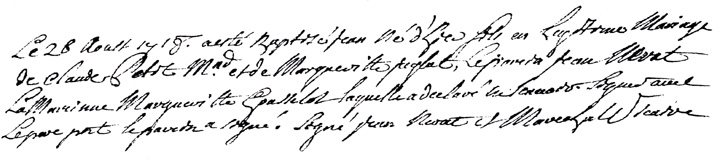 Le 28 Aoust 1718. a esté Baptisé jean Né d'hier fils en Legitime Mariage
de Claude Petit Md. et de Margueritte piglat, Le parein jean Nerat
La Mareinne Margueritte laquelle a declaré ne scavoir Signer avec
Le pere et le parein a signé. Signé jean Nerat et Marechal Vicaire